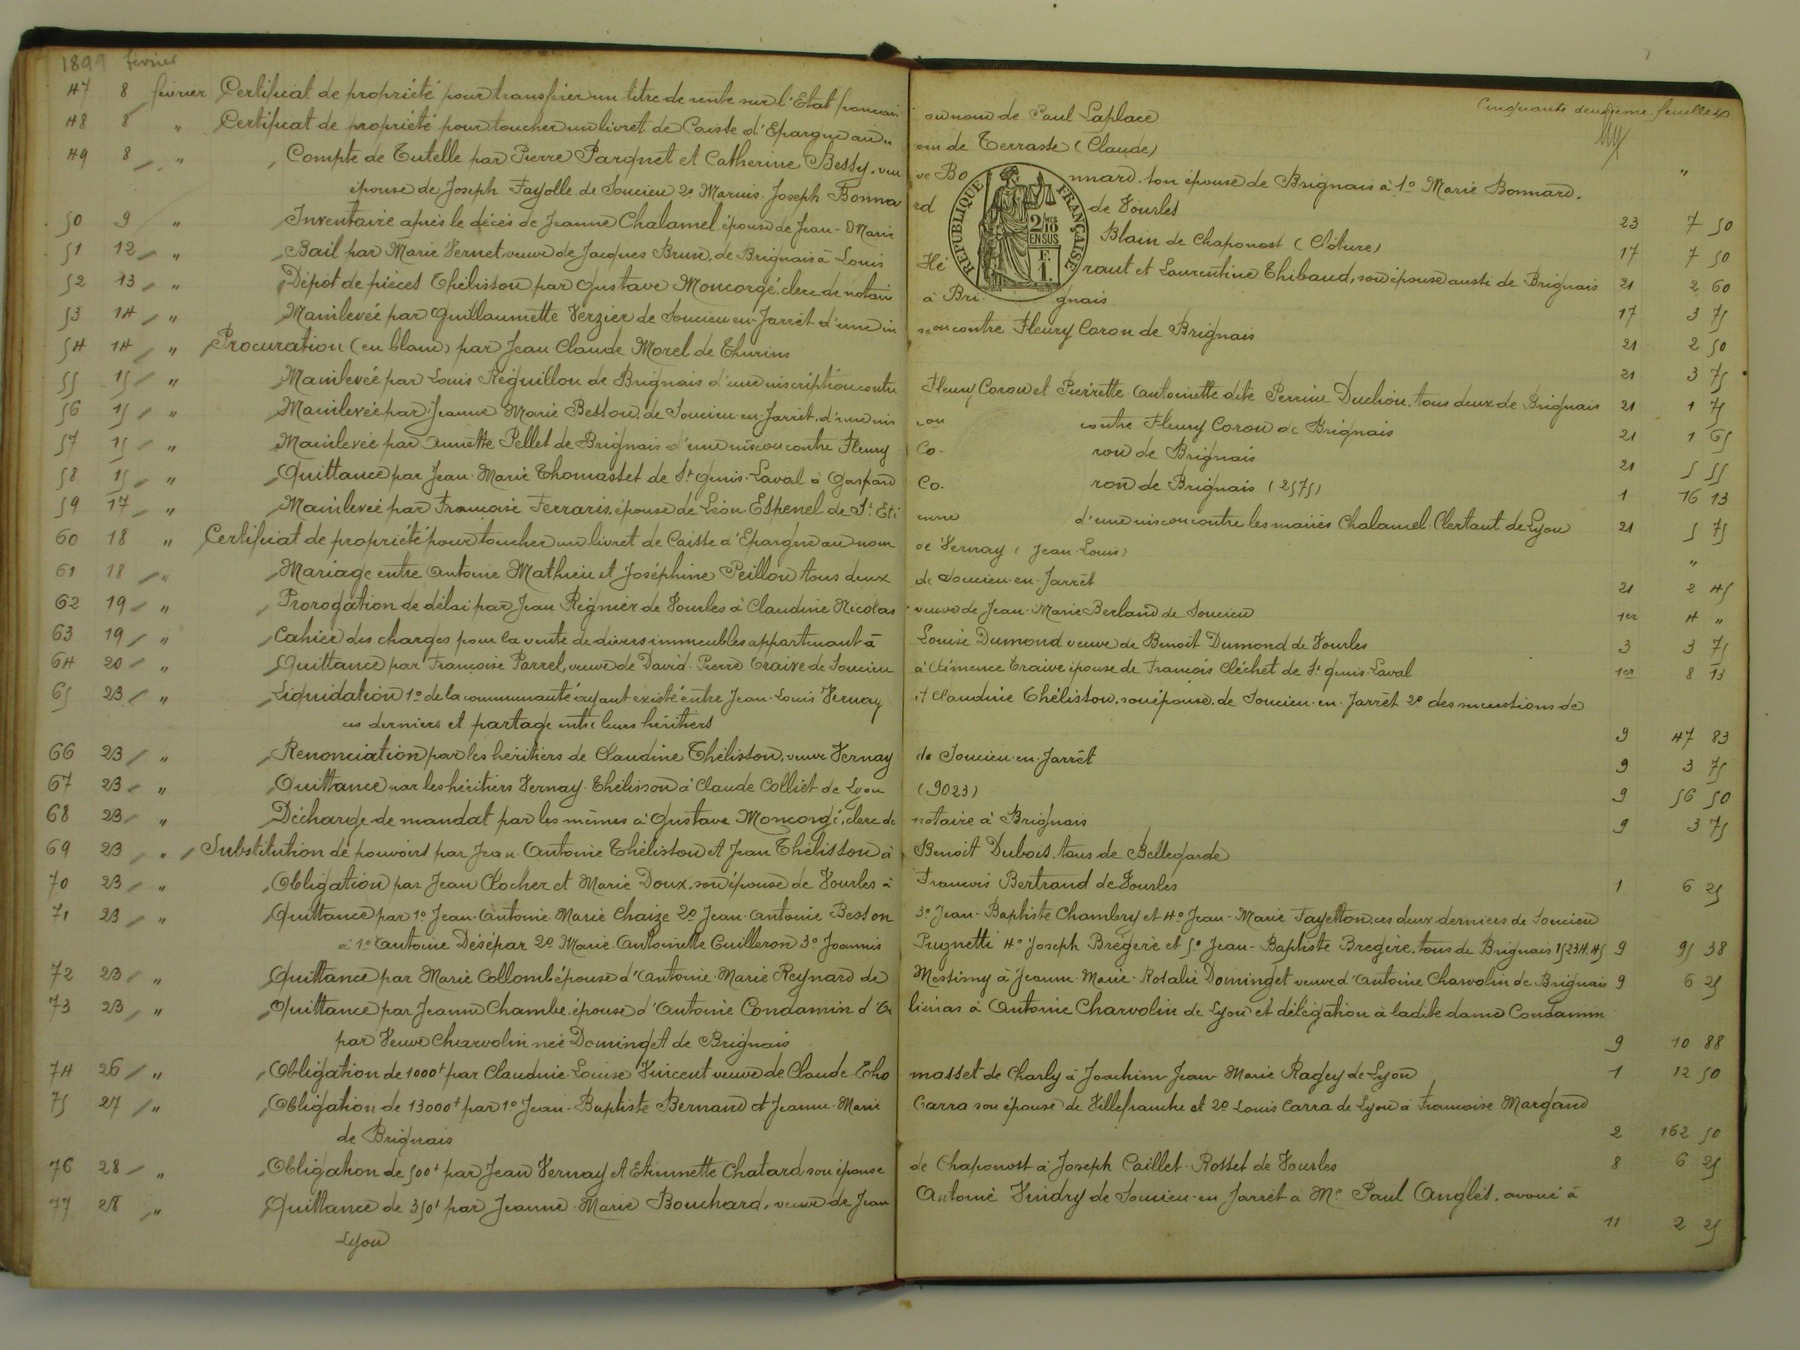 1899 février
Cinquante deuxième feuillet
47 8 février Certificat de propriété pour transférer un titre de rente sur l'Etat français au nom de Paul Laplace
48 8 " Certificat de propriété pour toucher un livret de Caisse d'Epargne au nom de Terrasse (Claude)
49 8 " Compte de Tutelle par Pierre Parquet et Catherine Bessy, veuve Bonnard, son épouse de Brignais à 1º Marie Bonnard, "
épouse de Joseph Fayolle de Soucieu 2º Marius Joseph Bonnard de Vourles 23 7 50
RÉPUBLIQUE FRANÇAISE
2/10 EN SUS
F. 1.
50 9 " Inventaire après le décès de Jeanne Chalamel épouse de Jean-Marie Blain de Chaponost (Clôture) 17 7 50
51 12 " Bail par Marie Vernet veuve de Jacques Brun, de Brignais à Louis Héraut et Laurentine Thibaud, son épouse aussi de Brignais 21 2 60
52 13 " Dépôt de pièces Thélisson par Gustave Moncorgé, clerc de notaire à Brignais 17 3 75
53 14 " Mainlevée par Guillaumette Verzier de Soucieu-en-Jarrêt d'une inson contre Fleury Coron de Brignais 21 2 50
54 14 " Procuration (en blanc) par Jean Claude Morel de Thurins 21 3 75
55 15 " Mainlevée par Louis Réguillon de Brignais d'une inscription contre Fleury Coron et Pierrette Antoinette dite Perrine Duchon, tous deux de Brignais 21 1 75
56 15 " Mainlevée par Jeanne Marie Besson, de Soucieu-en-Jarrêt, d'une inson contre Fleury Coron de Brignais 21 1 65
57 15 " Mainlevée par Annette Pellet de Brignais d'une inscon contre Fleury Coron de Brignais 21 5 55
58 15 " Quittance par Jean-Marie Thomasset de St Genis-Laval à Gaspard Coron de Brignais (2575) 1 16 13
59 17 " Mainlevée par Françoise Ferraris, épouse de Léon Espenel de St Etienne d'une inscon contre les mariés Chalamel-Clertant de Lyon 21 5 75
60 18 " Certificat de propriété pour toucher un livret de Caisse d'Epargne au nom de Vernay (Jean-Louis) "
61 18 " Mariage entre Antoine Mathieu et Joséphine Peillon tous deux de Soucieu-en-Jarrêt 21 2 45
62 19 " Prorogation de délai par Jean Régnier de Vourles à Claudine Nicolas veuve de Jean-Marie Berland de Soucieu 1er 4 "
63 19 " Cahier des charges pour la vente de divers immeubles appartenant à Louise Dumond veuve de Benoit Dumond de Vourles 3 3 75
64 20 " Quittance par Françoise Parrel, veuve de David-Pierre Traive de Soucieu à Clémence Traive épouse de François Cléchet de St Genis-Laval 1er 8 13
65 23 " Liquidation 1º de la communauté ayant existé entre Jean-Louis Vernay et Claudine Thélisson, son épouse, de Soucieu-en-Jarrêt 2º des successions de
ces derniers et partage entre leurs héritiers 9 47 83
66 23 " Renonciation par les héritiers de Claudine Thélisson, veuve Vernay de Soucieu-en-Jarrêt 9 3 75
67 23 " Quittance par les héritiers Vernay-Thélisson à Claude Colliet de Lyon (9023) 9 56 50
68 23 " Décharge de mandat par les mêmes à Gustave Moncorgé, clerc de notaire à Brignais 9 3 75
69 23 " Substitution de pouvoirs par Jean Antoine Thélisson et Jean Thélisson à Benoit Dubois, tous de Bellegarde
70 23 " Obligation par Jean Clocher et Marie Doux, son épouse de Vourles à François Bertrand de Vourles 1 6 25
71 23 " Quittance par 1º Jean-Antoine-Marie Chaize 2º Jean-Antoine Besson 3º Jean-Baptiste Chambry et 4º Jean-Marie Fayetton, ces deux derniers de Soucieu
à 1º Antoine Désépar 2º Marie-Antoinette Guilleron 3º Joannis Prugnetti 4º Joseph Bregère et 5º Jean-Baptiste Bregère, tous de Brignais 15234.45 9 95 38
72 23 " Quittance par Marie Collomb épouse d'Antoine-Marie Reynard de Messimy à Jeanne-Marie-Rosalie Dominget veuve d'Antoine Charvolin de Brignais 9 6 25
73 23 " Quittance par Jeanne Chambe, épouse d'Antoine Condamin d'Orliénas à Antoine Charvolin de Lyon et délégation à ladite dame Condamin
par Veuve Charvolin née Dominget de Brignais 9 10 88
74 26 " Obligation de 1000f par Claudine-Louise Vincent veuve de Claude Thomasset de Charly à Joachim-Jean-Marie Ragey de Lyon 1 12 50
75 27 " Obligation de 13000f par 1º Jean-Baptiste Bernand et Jeanne-Marie Carra son épouse de Villefranche et 2º Louis Carra de Lyon à Françoise Margand
de Brignais 2 162 50
76 28 " Obligation de 500f par Jean Vernay et Etiennette Chatard son épouse de Chaponost à Joseph Caillet-Rosset de Vourles 8 6 25
77 28 " Quittance de 350f par Jeanne-Marie Bouchard, veuve de Jean Antoine Vindry de Soucieu-en Jarrêt à Me Paul Anglès, avoué à
Lyon 11 2 25